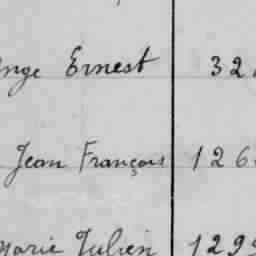 Ange Ernest 32
Jean François 126
Marie Julien 129